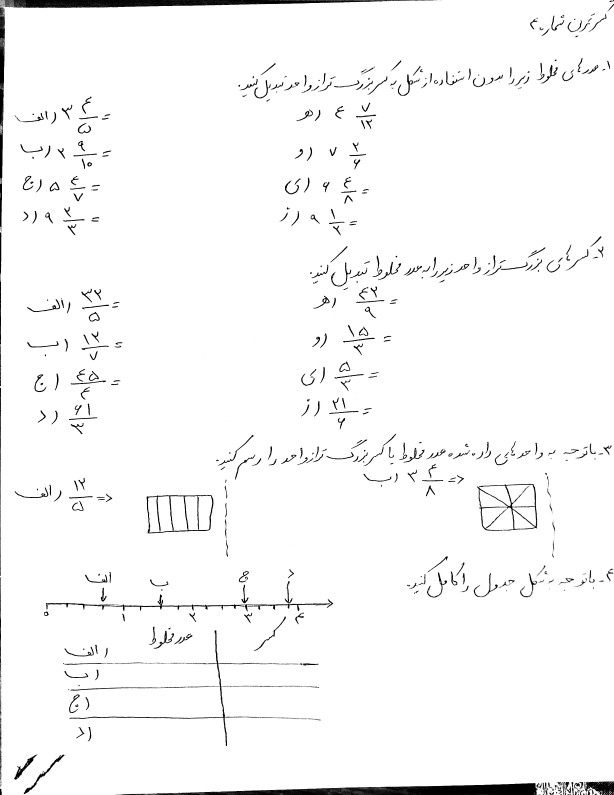 کسر تمرین شماره ۴
۱- عددهای مخلوط زیر را بدون استفاده از شکل به کسر بزرگ‌تر از واحد تبدیل کنید.
الف) ۳ ۴/۵ =
ه) ۴ ۷/۱۲
ب) ۲ ۹/۱۰ =
و) ۷ ۲/۶
ج) ۵ ۴/۷ =
ی) ۶ ۴/۸ =
د) ۹ ۲/۳ =
ز) ۹ ۱/۲ =
۲- کسرهای بزرگ‌تر از واحد زیر را به عدد مخلوط تبدیل کنید.
الف) ۳۲/۵ =
ه) ۴۲/۹ =
ب) ۱۲/۷ =
و) ۱۵/۳ =
ج) ۴۵/۴ =
ی) ۵/۳ =
د) ۶۱/۳
ز) ۲۱/۶ =
۳- با توجه به واحدهای داده شده عدد مخلوط یا کسر بزرگ‌تر از واحد را رسم کنید.
الف) ۱۲/۵ =>
ب) ۳ ۴/۸ =>
۴- با توجه به شکل جدول را کامل کنید.
الف ب ج د
۰ ۱ ۲ ۳ ۴
عدد مخلوط کسر
الف)
ب)
ج)
د)